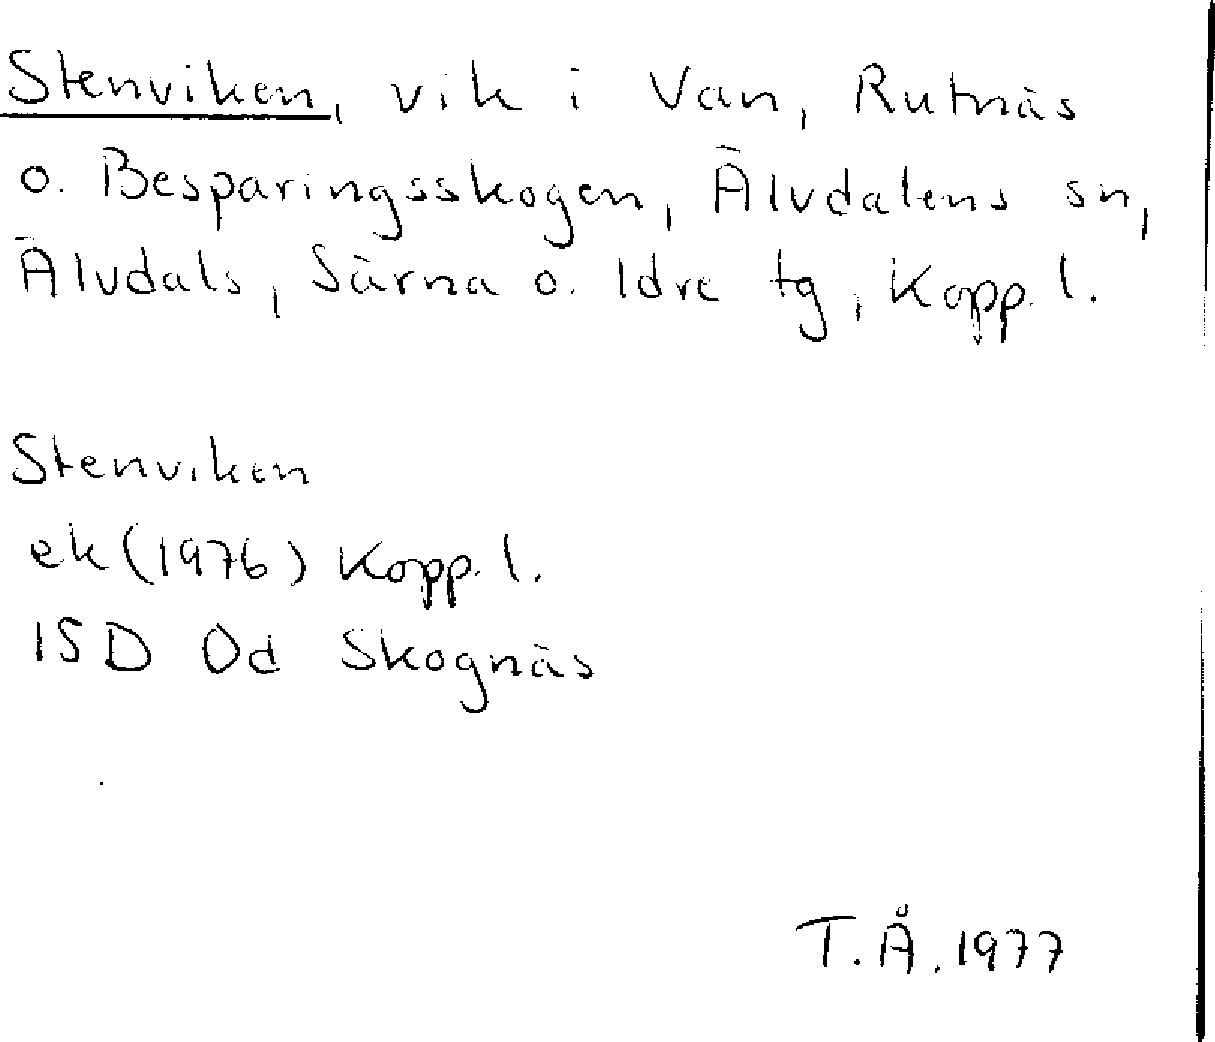 Stenviken, vik i Van, Rutnäs
o. Besparingsskogen, Älvdalens sn,
Älvdals, Särna o. Idre tg, Kopp. l.
Stenviken
ek (1976) Kopp. l.
15D 0d Skognäs
T.Å. 1977